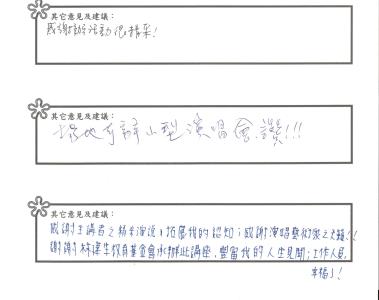 其它意見及建議：
感謝活動很精采！
其它意見及建議：
場地有辦小型演唱會.讚!!!
其它意見及建議：
感謝主講者之精采演說，拓展我的認知；感謝演唱藝術家之大賴!!
謝謝林澤生教育基金會承辦此講座，豐富我的人生見聞；工作人員
幸福了！